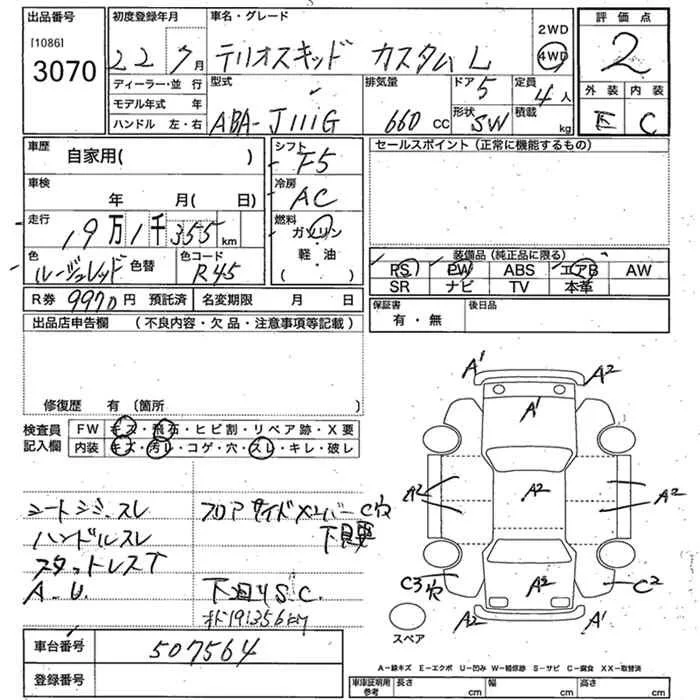 出品番号
[1086]
3070
初度登録年月
22 7月
車名・グレード
テリオスキッド カスタムL
2WD
4WD
評価点
2
外装 内装
E C
ディーラー・並行
モデル年式 年
ハンドル 左・右
型式
ABA-J111G
排気量
660 cc
ドア 5
形状 SW
定員 4人
積載 kg
車歴
自家用( )
車検
年 月( 日)
走行
19万1千355km
色
ルージュレッド 色替
色コード
R45
シフト
F5
冷房
AC
燃料
ガソリン
軽・油
( )
R券 9970円 預託済 名変期限 月 日
セールスポイント(正常に機能するもの)
装備品(純正品に限る)
PS PW ABS エアB AW
SR ナビ TV 本革
保証書
有・無
後日品
出品店申告欄 (不良内容・欠品・注意事項等記載)
修復歴 有(箇所 )
検査員記入欄
FW キズ・飛石・ヒビ割・リペア跡・X要
内装 キズ・汚レ・コゲ・穴・スレ・キレ・破レ
シートシミ.スレ
ハンドルスレ
スタットレスT
A-U.
フロアサイドメンバーC穴
下見要
下回りS.C.
オド191356KM
A1 A2
A1
A2 A2 A2
C3穴 A2 C2
A2 A1
スペア
車台番号 507564
登録番号
A-線キズ E-エクボ U-凹み W-補修跡 S-サビ C-腐食 XX-取替済
車庫証明用参考 長さ cm 幅 cm 高さ cm